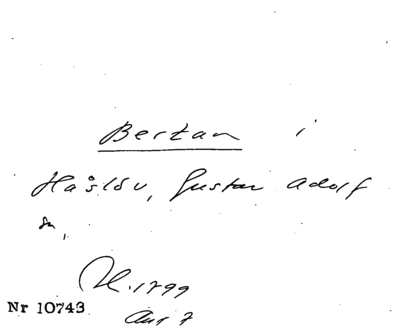 Bertan i
Håslöv, Gustav Adolf
1799
Nr 10743